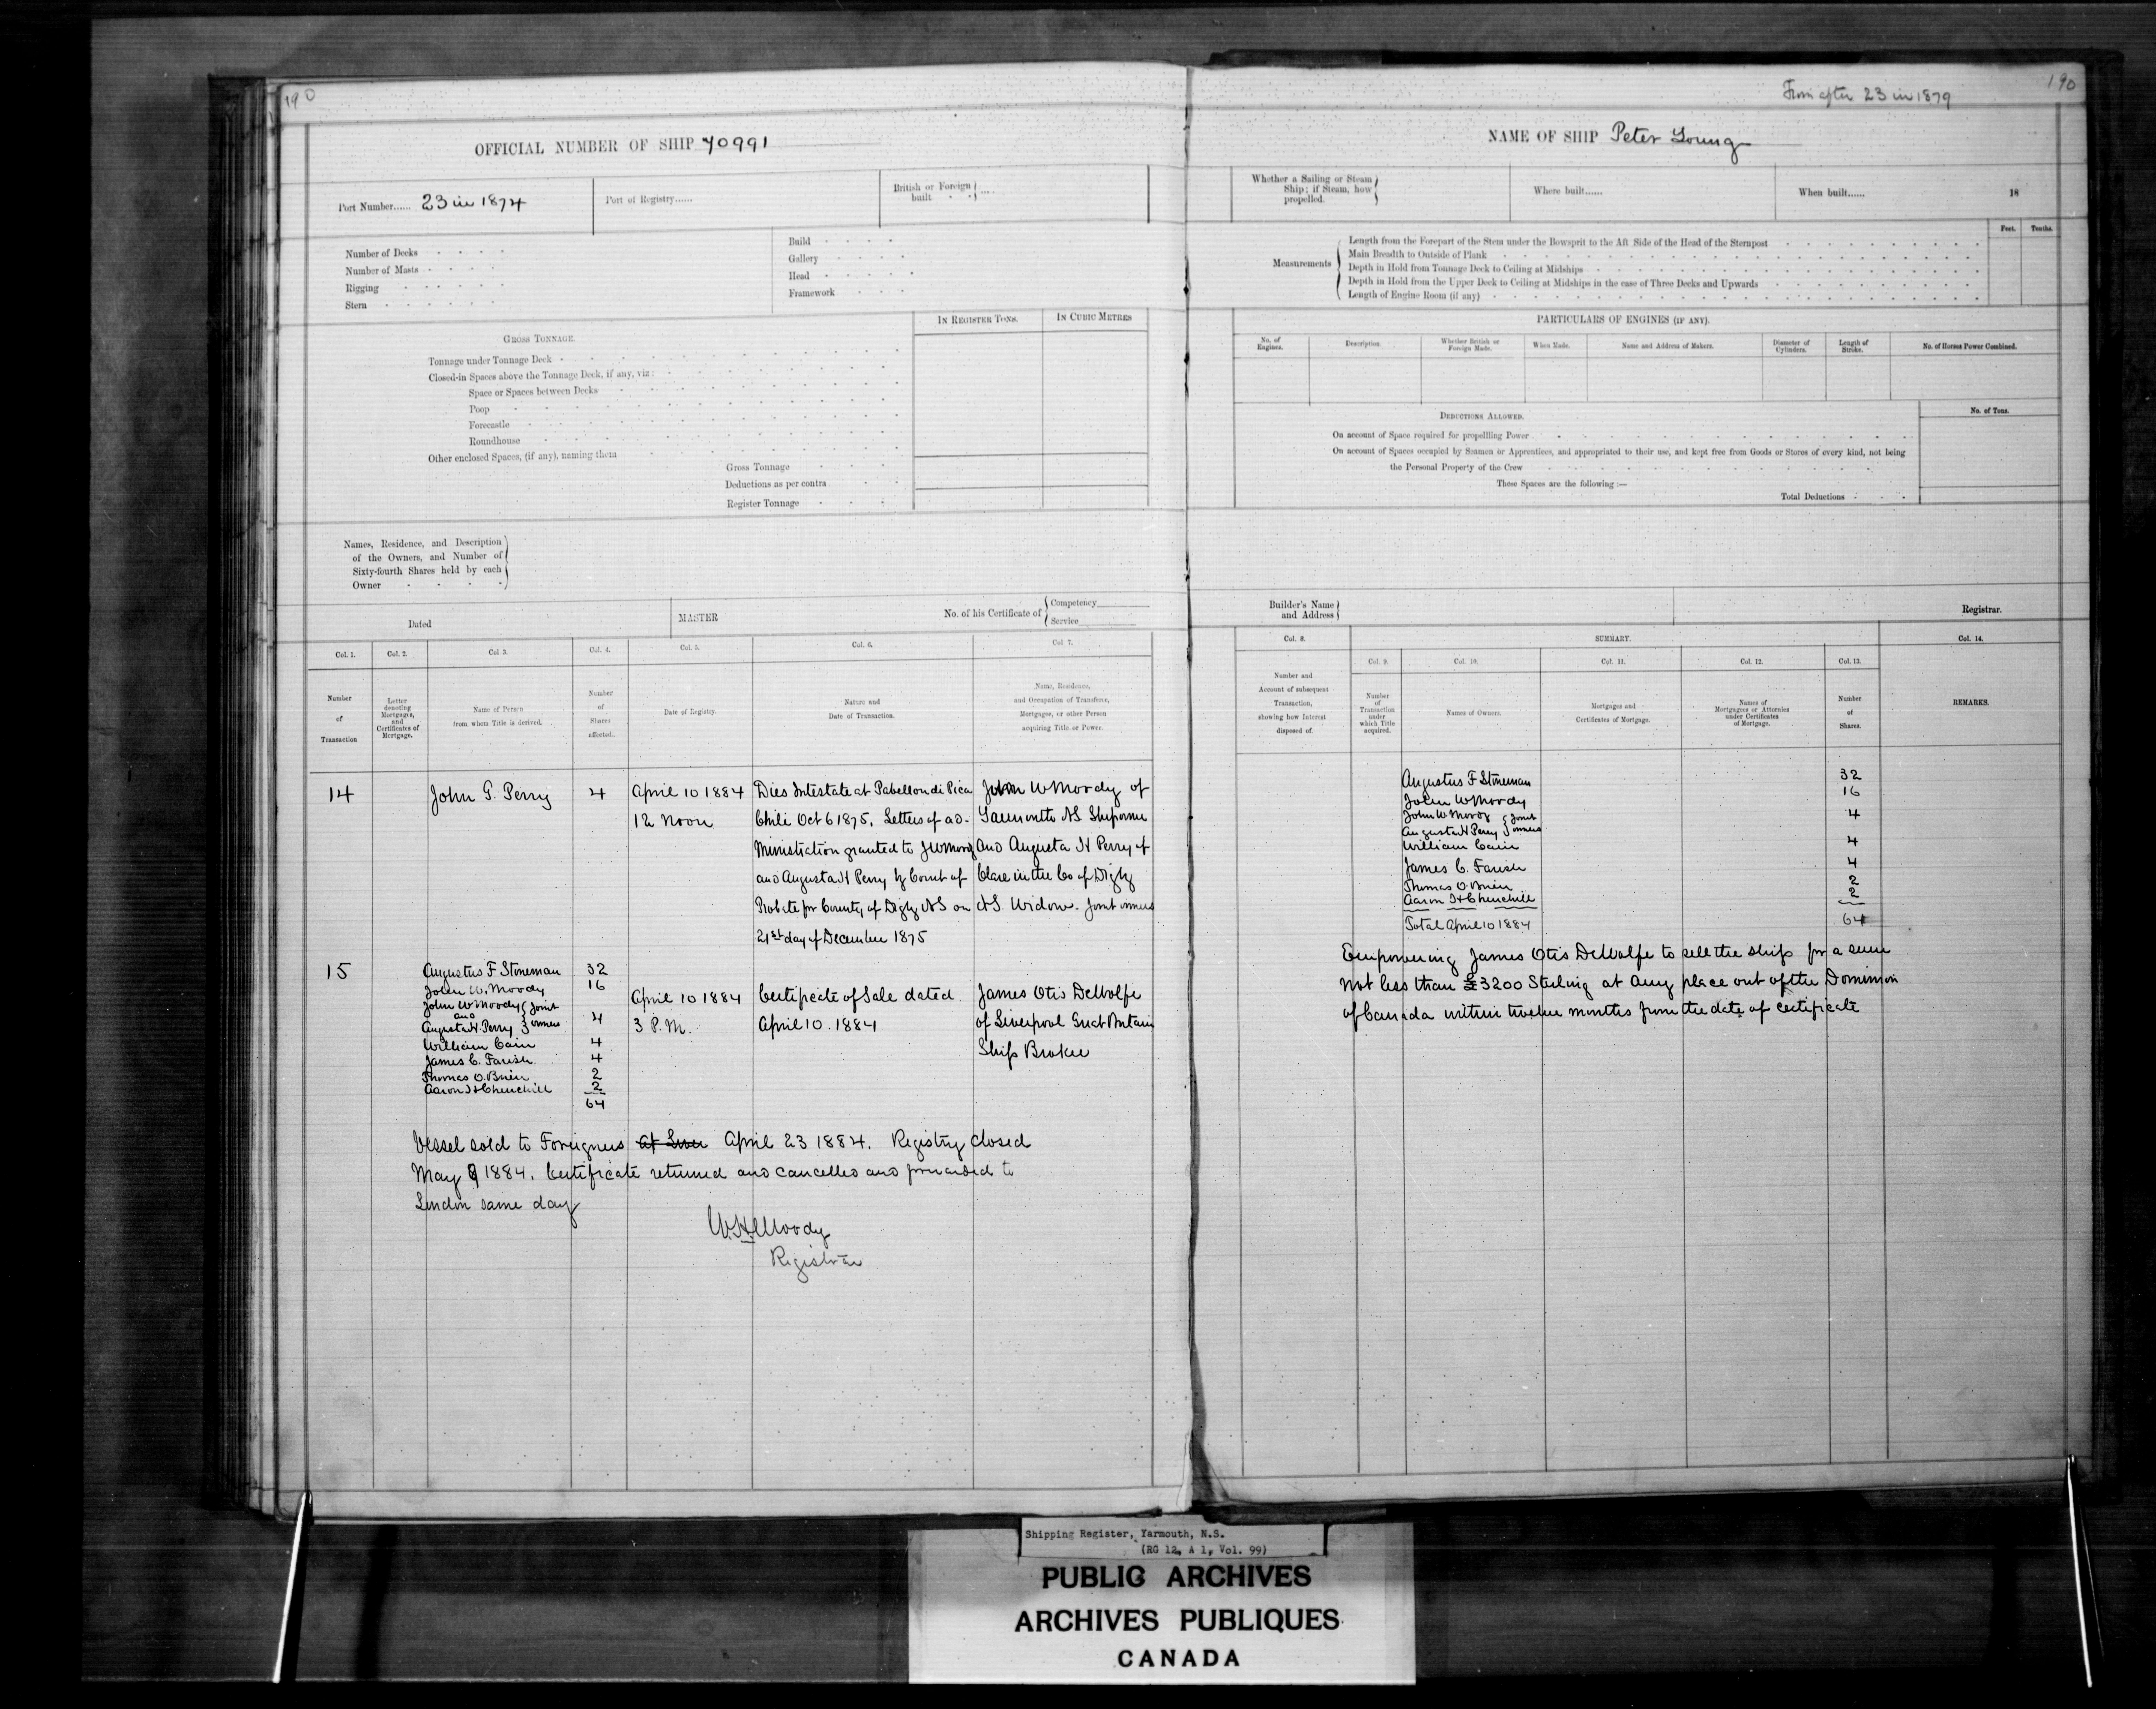 190
OFFICIAL NUMBER OF SHIP 70991
Port Number...... 23 in 1874
Port of Registry......
British or Foreign built ....
Number of Decks
Number of Masts
Rigging
Stern
Build
Gallery
Head
Framework
IN REGISTER TONS.
IN CUBIC METRES
GROSS TONNAGE.
Tonnage under Tonnage Deck
Closed-in Spaces above the Tonnage Deck, if any, viz:
Space or Spaces between Decks
Poop
Forecastle
Roundhouse
Other enclosed Spaces, (if any), naming them
Gross Tonnage
Deductions as per contra
Register Tonnage
Names, Residence, and Description
of the Owners, and Number of
Sixty-fourth Shares held by each
Owner
Dated
MASTER
No. of his Certificate of { Competency
Service
Col. 1.
Col. 2.
Col. 3.
Col. 4.
Col. 5.
Col. 6.
Col. 7.
Number
of
Transaction
Letter
denoting
Mortgages,
and
Certificates of
Mortgage.
Name of Person
from whom Title is derived.
Number
of
Shares
affected.
Date of Registry.
Nature and
Date of Transaction.
Name, Residence,
and Occupation of Transferee,
Mortgagee, or other Person
acquiring Title or Power.
14
John G. Perry
4
April 10 1884
12 Noon
Dies Intestate at Pabellon di Pica
Chili Oct 6 1875. Letters of ad-
ministration granted to JW Moody
and Augusta H Perry by Court of
Probate for County of Digby NS on
21st day of December 1875
John W Moody of
Yarmouth NS Shipowner
and Augusta H Perry of
Clare in the Co of Digby
NS. Widow. Joint owners
15
Augustus F Stoneman 32
John W. Moody 16
John W Moody } Joint
and
Augusta H. Perry } owners 4
William Cain 4
James C. Farish 4
Thomas O. Brien 2
Aaron Churchill 2
64
April 10 1884
3 P.M.
Certificate of Sale dated
April 10. 1884
James Otis DeWolfe
of Liverpool Great Britain
Ship Broker
Vessel sold to Foreigners at Liver April 23 1884. Registry closed
May 9 1884. Certificate returned and cancelled and forwarded to
London same day
W.H. Moody
Registrar
190
From after 23 in 1879
NAME OF SHIP Peter Young
Whether a Sailing or Steam
Ship; if Steam, how
propelled.
Where built......
When built...... 18
Feet. Tenths.
Measurements
Length from the Forepart of the Stem under the Bowsprit to the Aft Side of the Head of the Sternpost
Main Breadth to Outside of Plank
Depth in Hold from Tonnage Deck to Ceiling at Midships
Depth in Hold from the Upper Deck to Ceiling at Midships in the case of Three Decks and Upwards
Length of Engine Room (if any)
PARTICULARS OF ENGINES (IF ANY).
No. of
Engines.
Description.
Whether British or
Foreign Made.
When Made.
Name and Address of Makers.
Diameter of
Cylinders.
Length of
Stroke.
No. of Horses Power Combined.
DEDUCTIONS ALLOWED.
No. of Tons.
On account of Space required for propellling Power
On account of Spaces occupied by Seamen or Apprentices, and appropriated to their use, and kept free from Goods or Stores of every kind, not being
the Personal Property of the Crew
These Spaces are the following:—
Total Deductions
Builder's Name
and Address
Registrar.
Col. 8.
SUMMARY.
Col. 14.
Col. 9.
Col. 10.
Col. 11.
Col. 12.
Col. 13.
Number and
Account of subsequent
Transaction,
showing how Interest
disposed of.
Number
of
Transaction
under
which Title
acquired.
Names of Owners.
Mortgages and
Certificates of Mortgage.
Names of
Mortgagees or Attornies
under Certificates
of Mortgage.
Number
of
Shares.
REMARKS.
Augustus F Stoneman 32
John W Moody 16
John W Moody } Joint 4
Augusta H Perry } owners
William Cain 4
James C. Farish 4
Thomas O. Brien 2
Aaron Churchill 2
Total April 10 1884 64
Empowering James Otis DeWolfe to sell the ship for a sum
not less than £3200 Sterling at any place out of the Dominion
of Canada within twelve months from the date of certificate
Shipping Register, Yarmouth, N.S.
(RG 12, A 1, Vol. 99)
PUBLIC ARCHIVES
ARCHIVES PUBLIQUES
CANADA